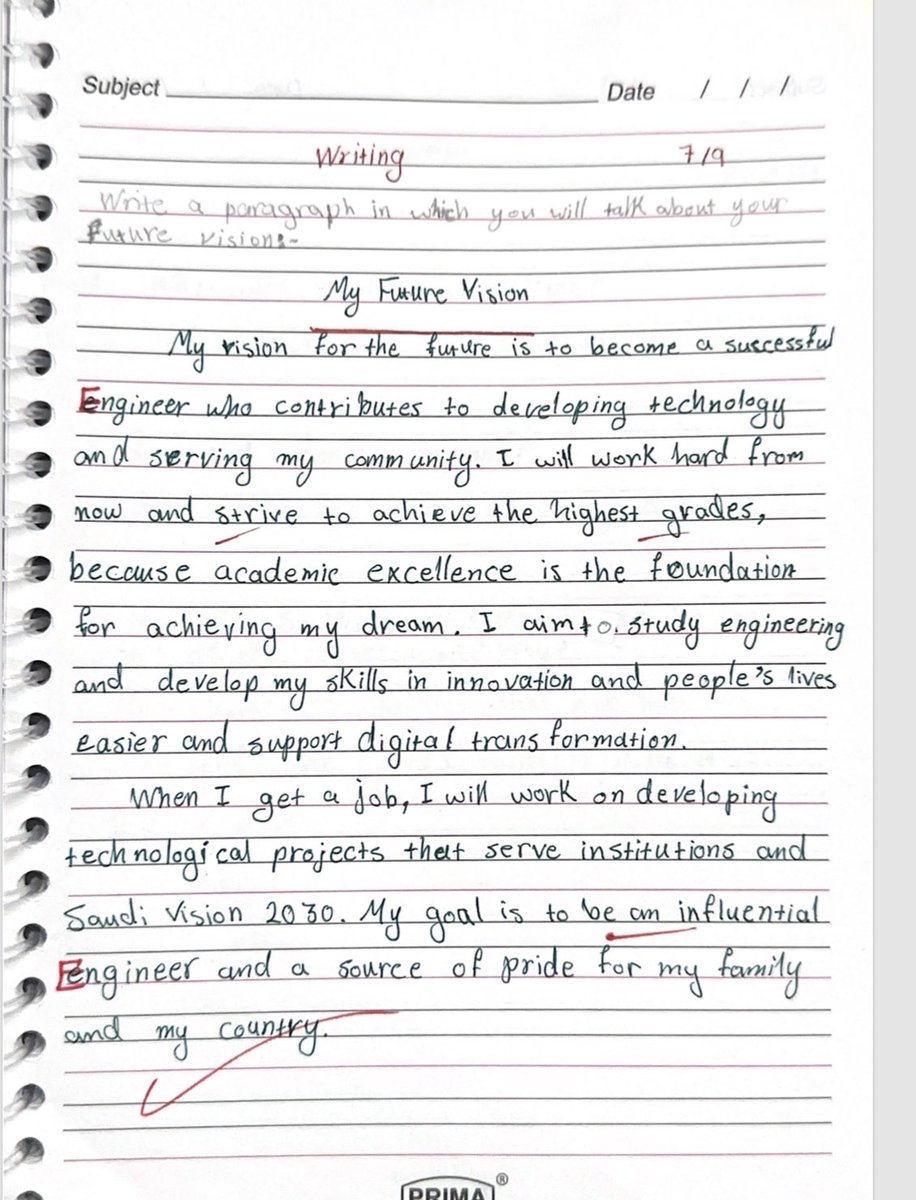 Subject Date / / /
Writing 7/9
Write a paragraph in which you will talk about your
Future vision:-
My Future Vision
My vision for the future is to become a successful
Engineer who contributes to developing technology
and serving my community. I will work hard from
now and strive to achieve the highest grades,
because academic excellence is the foundation
for achieving my dream. I aim to. study engineering
and develop my skills in innovation and people's lives
easier and support digital transformation.
When I get a job, I will work on developing
technological projects that serve institutions and
Saudi Vision 2030. My goal is to be an influential
Engineer and a source of pride for my family
and my country.
PRIMA®